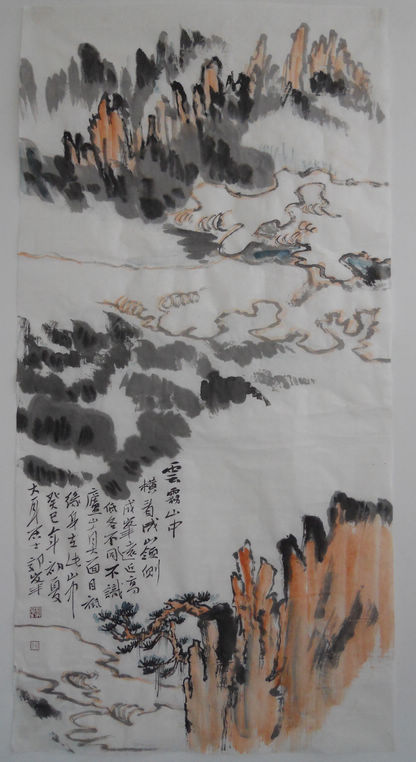 雲霧山中
橫看成嶺側
成峯遠近高
低各不同不識
廬山真面目祇
緣身在此山中
癸巳年初夏
大月居士